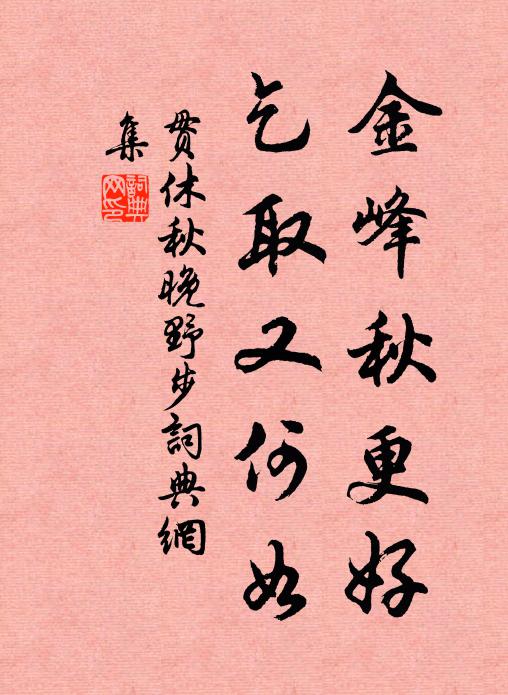 金峰秋更好
乞取又何如
貫休秋晚野步詞典網
集
詞典網印